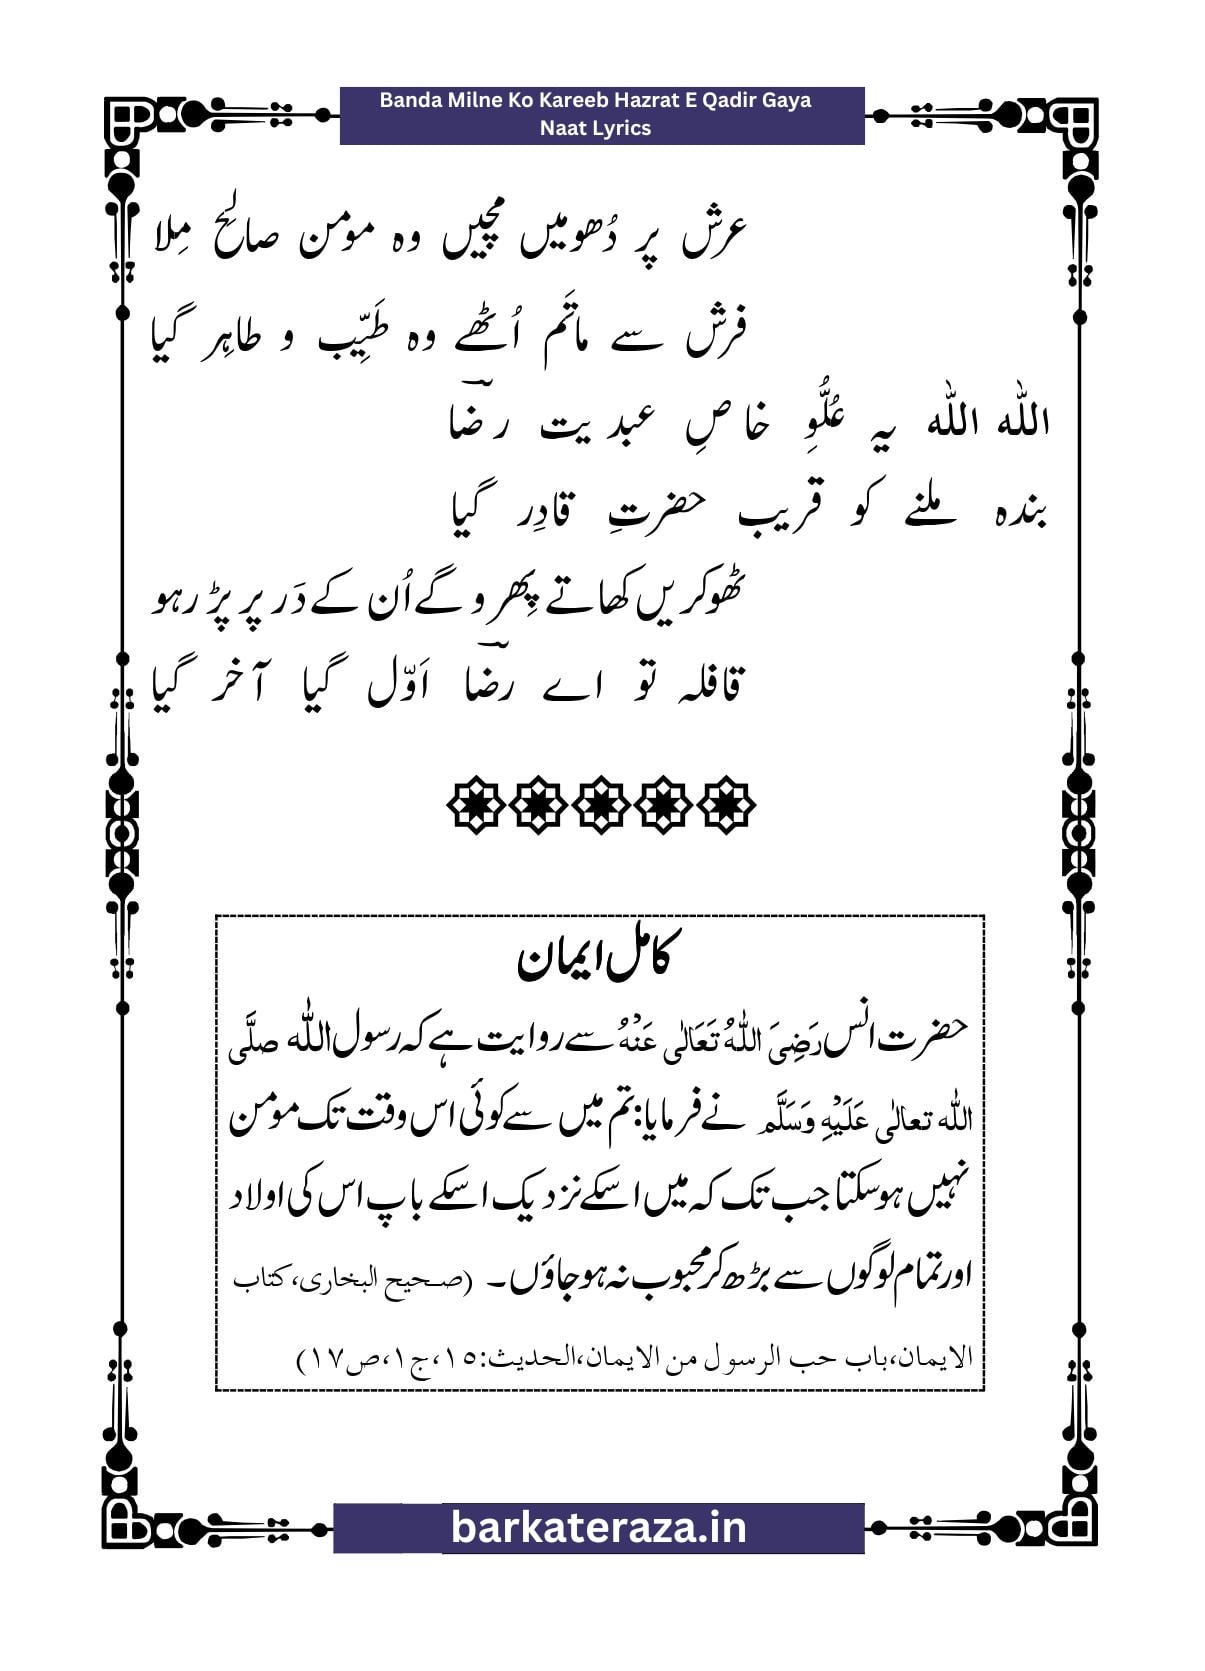 Banda Milne Ko Kareeb Hazrat E Qadir Gaya
Naat Lyrics
عرش پر دُھومیں مچیں وہ مومن صالِح مِلا
فرش سے ماتَم اُٹھے وہ طَیِّب و طاہِر گیا
اللہ اللہ یہ عُلُّوِ خاصِ عبدیت رضاؔ
بندہ ملنے کو قریب حضرتِ قادِر گیا
ٹھوکریں کھاتے پِھرو گے اُن کے دَر پر پڑ رہو
قافلہ تو اے رضاؔ اَوّل گیا آخر گیا
کامل ایمان
حضرت انس رَضِیَ اللّٰهُ تَعَالٰی عَنْهُ سے روایت ہے کہ رسول اللّٰہ صلَّی
اللّٰه تعالٰی عَلَیْهِ وَسَلَّم نے فرمایا: تم میں سے کوئی اس وقت تک مومن
نہیں ہوسکتا جب تک کہ میں اسکے نزدیک اسکے باپ اس کی اولاد
اور تمام لوگوں سے بڑھ کر محبوب نہ ہو جاؤں۔ (صحیح البخاری،کتاب
الایمان،باب حب الرسول من الایمان،الحدیث:۱۵،ج۱،ص۱۷)
barkateraza.in